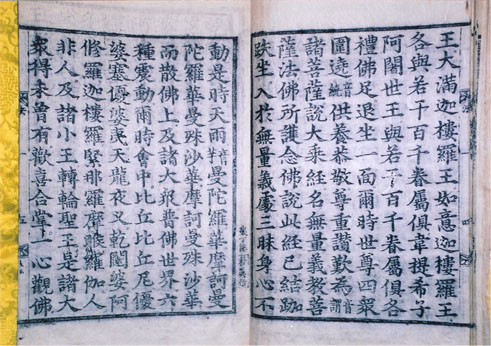 王大滿迦樓羅王如意迦樓羅王
各與若干百千眷屬俱韋提希子
阿闍世王與若干百千眷屬俱各
禮佛足退坐一面爾時世尊四衆
圍遶供養恭敬尊重讚歎為
諸菩薩說大乘經名無量義教菩
薩法佛所護念佛說此經已結跏
趺坐入於無量義處三昧身心不
動是時天雨曼陀羅華摩訶曼
陀羅華曼殊沙華摩訶曼殊沙華
而散佛上及諸大衆普佛世界六
種震動爾時會中比丘比丘尼優
婆塞優婆夷天龍夜叉乾闥婆阿
修羅迦樓羅緊那羅摩睺羅伽人
非人及諸小王轉輪聖王是諸大
衆得未曾有歡喜合掌一心觀佛